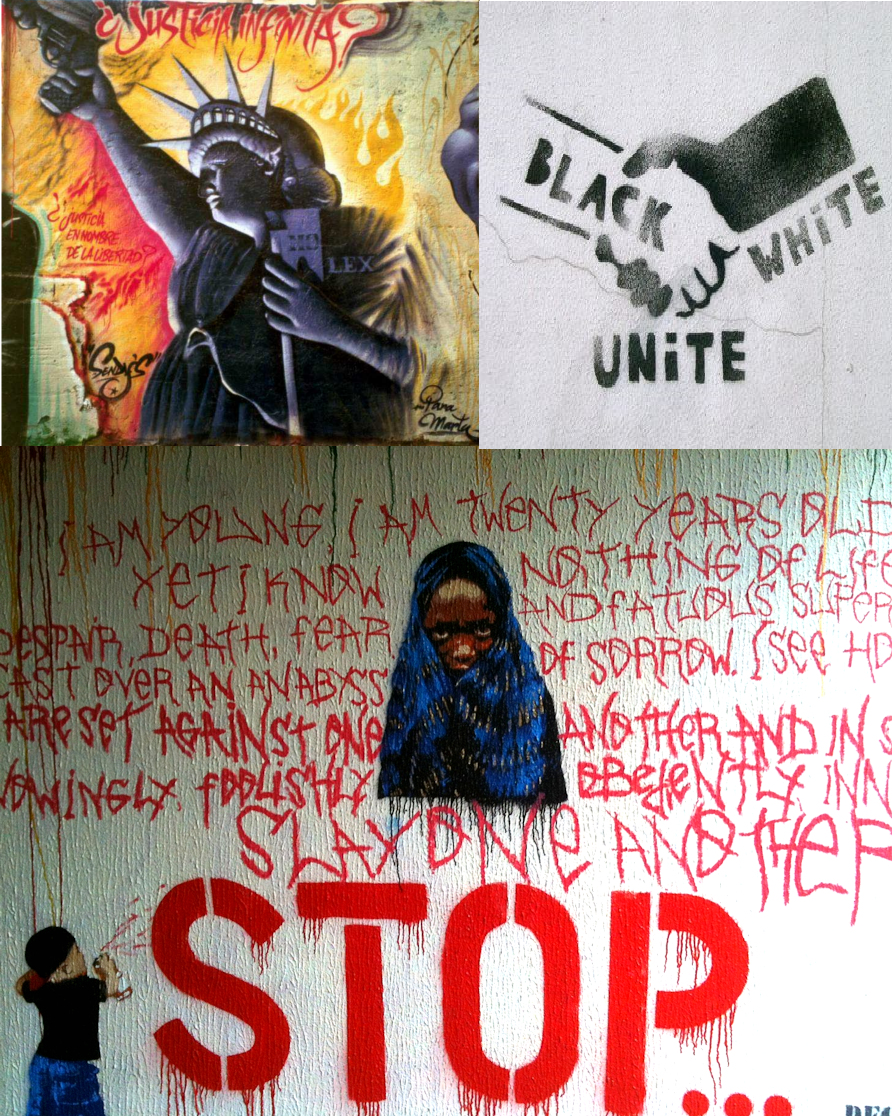 ¿JUSTICIA INFINITA?
¿JUSTICIA
EN NOMBRE
DE LA LIBERTAD?
NO
LEX
"SENDYS"
Para
Marta
BLACK
WHITE
UNITE
I AM YOUNG, I AM TWENTY YEARS OLD
YET I KNOW NOTHING OF LIFE
DESPAIR, DEATH, FEAR AND FATUOUS SUPER
CAST OVER AN ANABYSS OF SORROW. I SEE HO
ARE SET AGAINST ONE ANOTHER AND IN S
OWINGLY, FOOLISHLY OBEDIENTLY, INN
SLAY ONE ANOTHER
STOP...